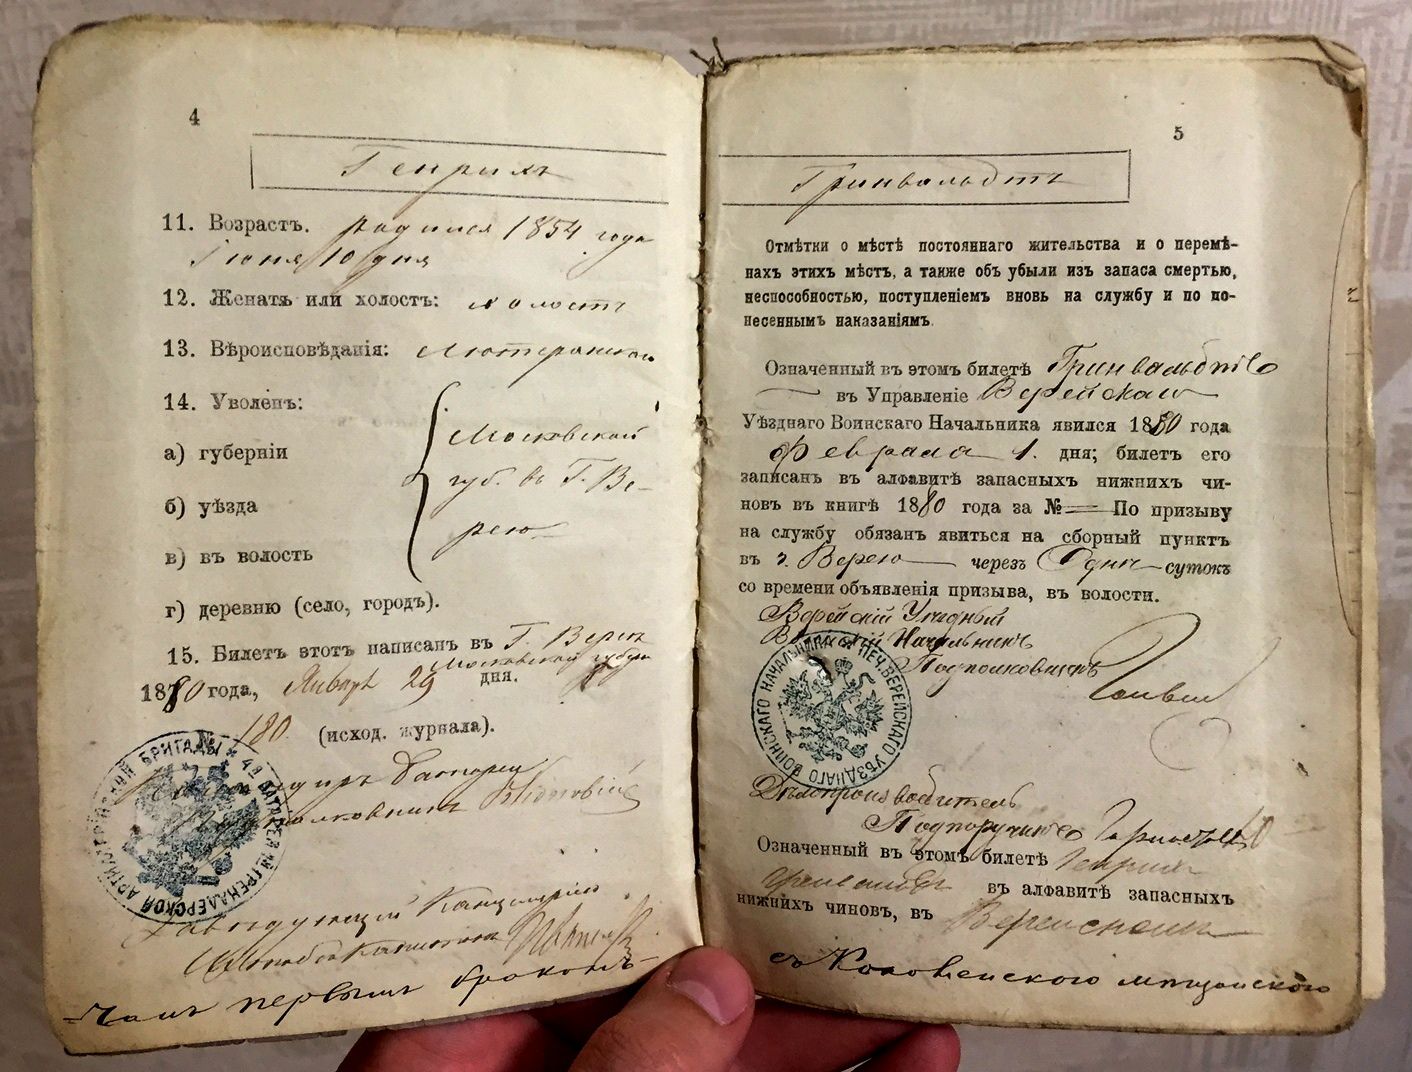 4
Генрихъ
11. Возрастъ. родился 1854 года
Іюня 10 дня
12. Женатъ или холостъ: холостъ
13. Вѣроисповѣданія: Лютеранскаго
14. Уволенъ:
а) губерніи
Московской
б) уѣзда
губ. въ Г. Ве-
рею
в) въ волость
г) деревню (село, городъ).
15. Билетъ этотъ написанъ въ Г. Вереѣ
Московской губерн
1880 года, Января 29 дня.
№ 180 (исход. журнала).
4й БАТАРЕИ ГРЕНАДЕРСКОЙ АРТИЛЛЕРІЙСКОЙ БРИГАДЫ
Командиръ батареи
Полковникъ
Завѣдующій Канцеляріею
Штабсъ-Капитанъ
первымъ бракомъ
5
Гринвальдтъ
Отмѣтки о мѣстѣ постояннаго жительства и о перемѣ-
нахъ этихъ мѣстъ, а также объ убыли изъ запаса смертью,
неспособностью, поступленіемъ вновь на службу и по по-
несеннымъ наказаніямъ.
Означенный въ этомъ билетѣ Гринвальдтъ
въ Управленіе Верейскаго
Уѣзднаго Воинскаго Начальника явился 1880 года
Февраля 1. дня; билетъ его
записанъ въ алфавитѣ запасныхъ нижнихъ чи-
новъ въ книгѣ 1880 года за № По призыву
на службу обязанъ явиться на сборный пунктъ
въ г. Верею черезъ Одни сутокъ
со времени объявленія призыва, въ волости.
Верейскій Уѣздный
Воинскій Начальникъ
Подполковникъ
ПЕЧ. ВЕРЕЙСКАГО УѢЗДНАГО ВОИНСКАГО НАЧАЛЬНИКА
Дѣлопроизводитель
Подпоручикъ
Означенный въ этомъ билетѣ Генрих
въ алфавитѣ запасныхъ
нижнихъ чиновъ, въ Верейскомъ
съ Коломенскою мещанскою